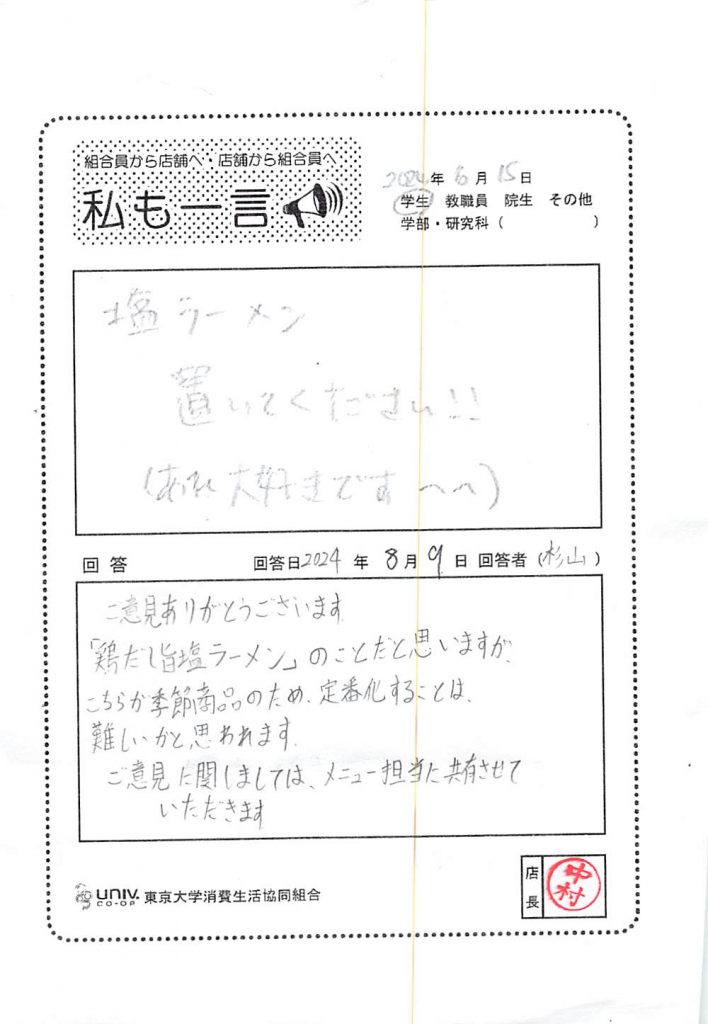 組合員から店舗へ・店舗から組合員へ
私も一言
2024年 6月 15日
学生 教職員 院生 その他
学部・研究科 ( )
塩ラーメン
置いてください!!
(あれ大好きです へへ)
回答 回答日2024 年 8月 9日 回答者 (杉山)
ご意見ありがとうございます
「鶏だし旨塩ラーメン」のことだと思いますが、
こちらが季節商品のため、定番化することは、
難しいかと思われます.
ご意見に関しましては、メニュー担当に共有させて
いただきます
UNIV. CO-OP 東京大学消費生活協同組合
店長 中村